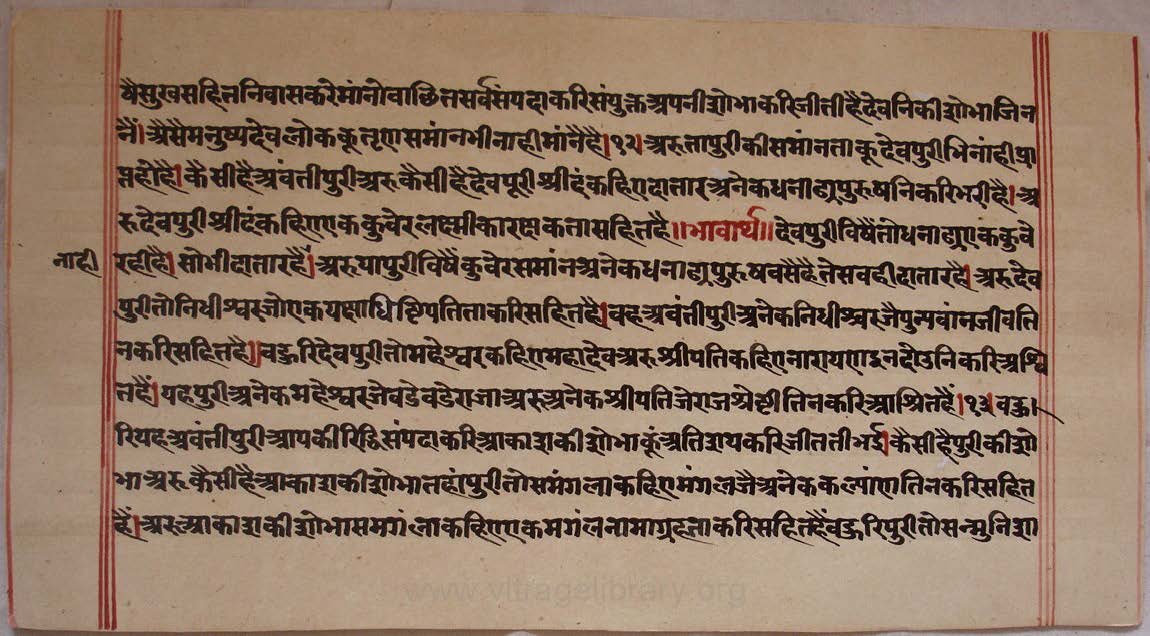 षैसुखसहितनिवासकरेमांनोवांछितसर्वसंपदाकरिसंपुक्तअपनीशोभाकरिजीतीहैदेवनिकीशोभाजिन
नैं।अैसैमनुष्यदेवलोककूतृणसमांनभीनाहीमांनैहै।१२।अरुतापुरीकीसमांनताकूदेवपुरीभिनांहीप्रा
प्तहोहै।कैसीहैअवंतीपुरीअरुकैसीहैदेवपूरीश्रीदंकहिएदातारअनेकधनाढ्यपुरुषनिकरिभरीहै।अ
रुदेवपुरीश्रीदंकहिएएककुवेरलक्ष्मीकारक्षकतासहितहै॥भावार्थ॥देवपुरीविषैंतोधनाढ्यएककुवे
नाही रहीहै।सोभीदातारहैं।अरुयापुरीविषैंकुवेरसमांनअनेकधनाढ्यपुरुषवसैहैतेसवहीदातारहै।अरुदेव
पुरीतोनिधीश्वरजोएकयक्षाधिष्टिपतिताकरिसहितहै।वहअवंतीपुरीअनेकनिधीश्वरजैपुन्यवांनजीवति
नकरिसहितहै॥वङरिदेवपुरीतोमहेश्वरकहिएमहादेवअरुश्रीपतिकहिएनारायणइनदोउनिकरिअश्रि
तहैं।यहपुरीअनेकमहेश्वरजेवडेवडेराजाअरुअनेकश्रीपतिजेराजश्रेष्टीतिनकरिआश्रितहैं।१३।वङ
रियहअवंतीपुरीआपकीरिद्धिसंपदाकरिआकाशकीशोभाकूंअतिशयकरिजीततीभई।कैसीहैपुरीकीशो
भाअरुकैसीहैआकाशकीशोभातहांपुरीतोसमंगलाकहिएमंगलजैअनेककल्पांणतिनकरिसहित
हैं।अरुआकाशकीशोभासमगंलाकहिएएकमगंलनामाग्रहताकरिसहितहैंवङरिपुरीतोसन्मुनिशा
www.vitragelibrary.org